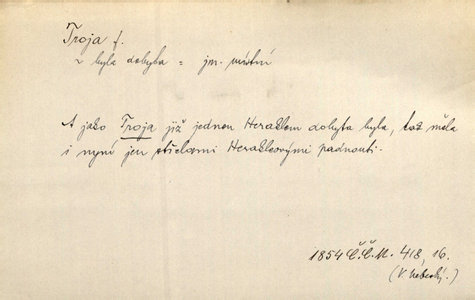 Troja f.
~ byla dobyta = jm. místní
A jako Troja již jednou Heraklem dobyta byla, tož měla
i nyní jen střelami Herakleovými padnouti.
1854 Č.Č.M. 418, 16.
(V. Nebeský.)